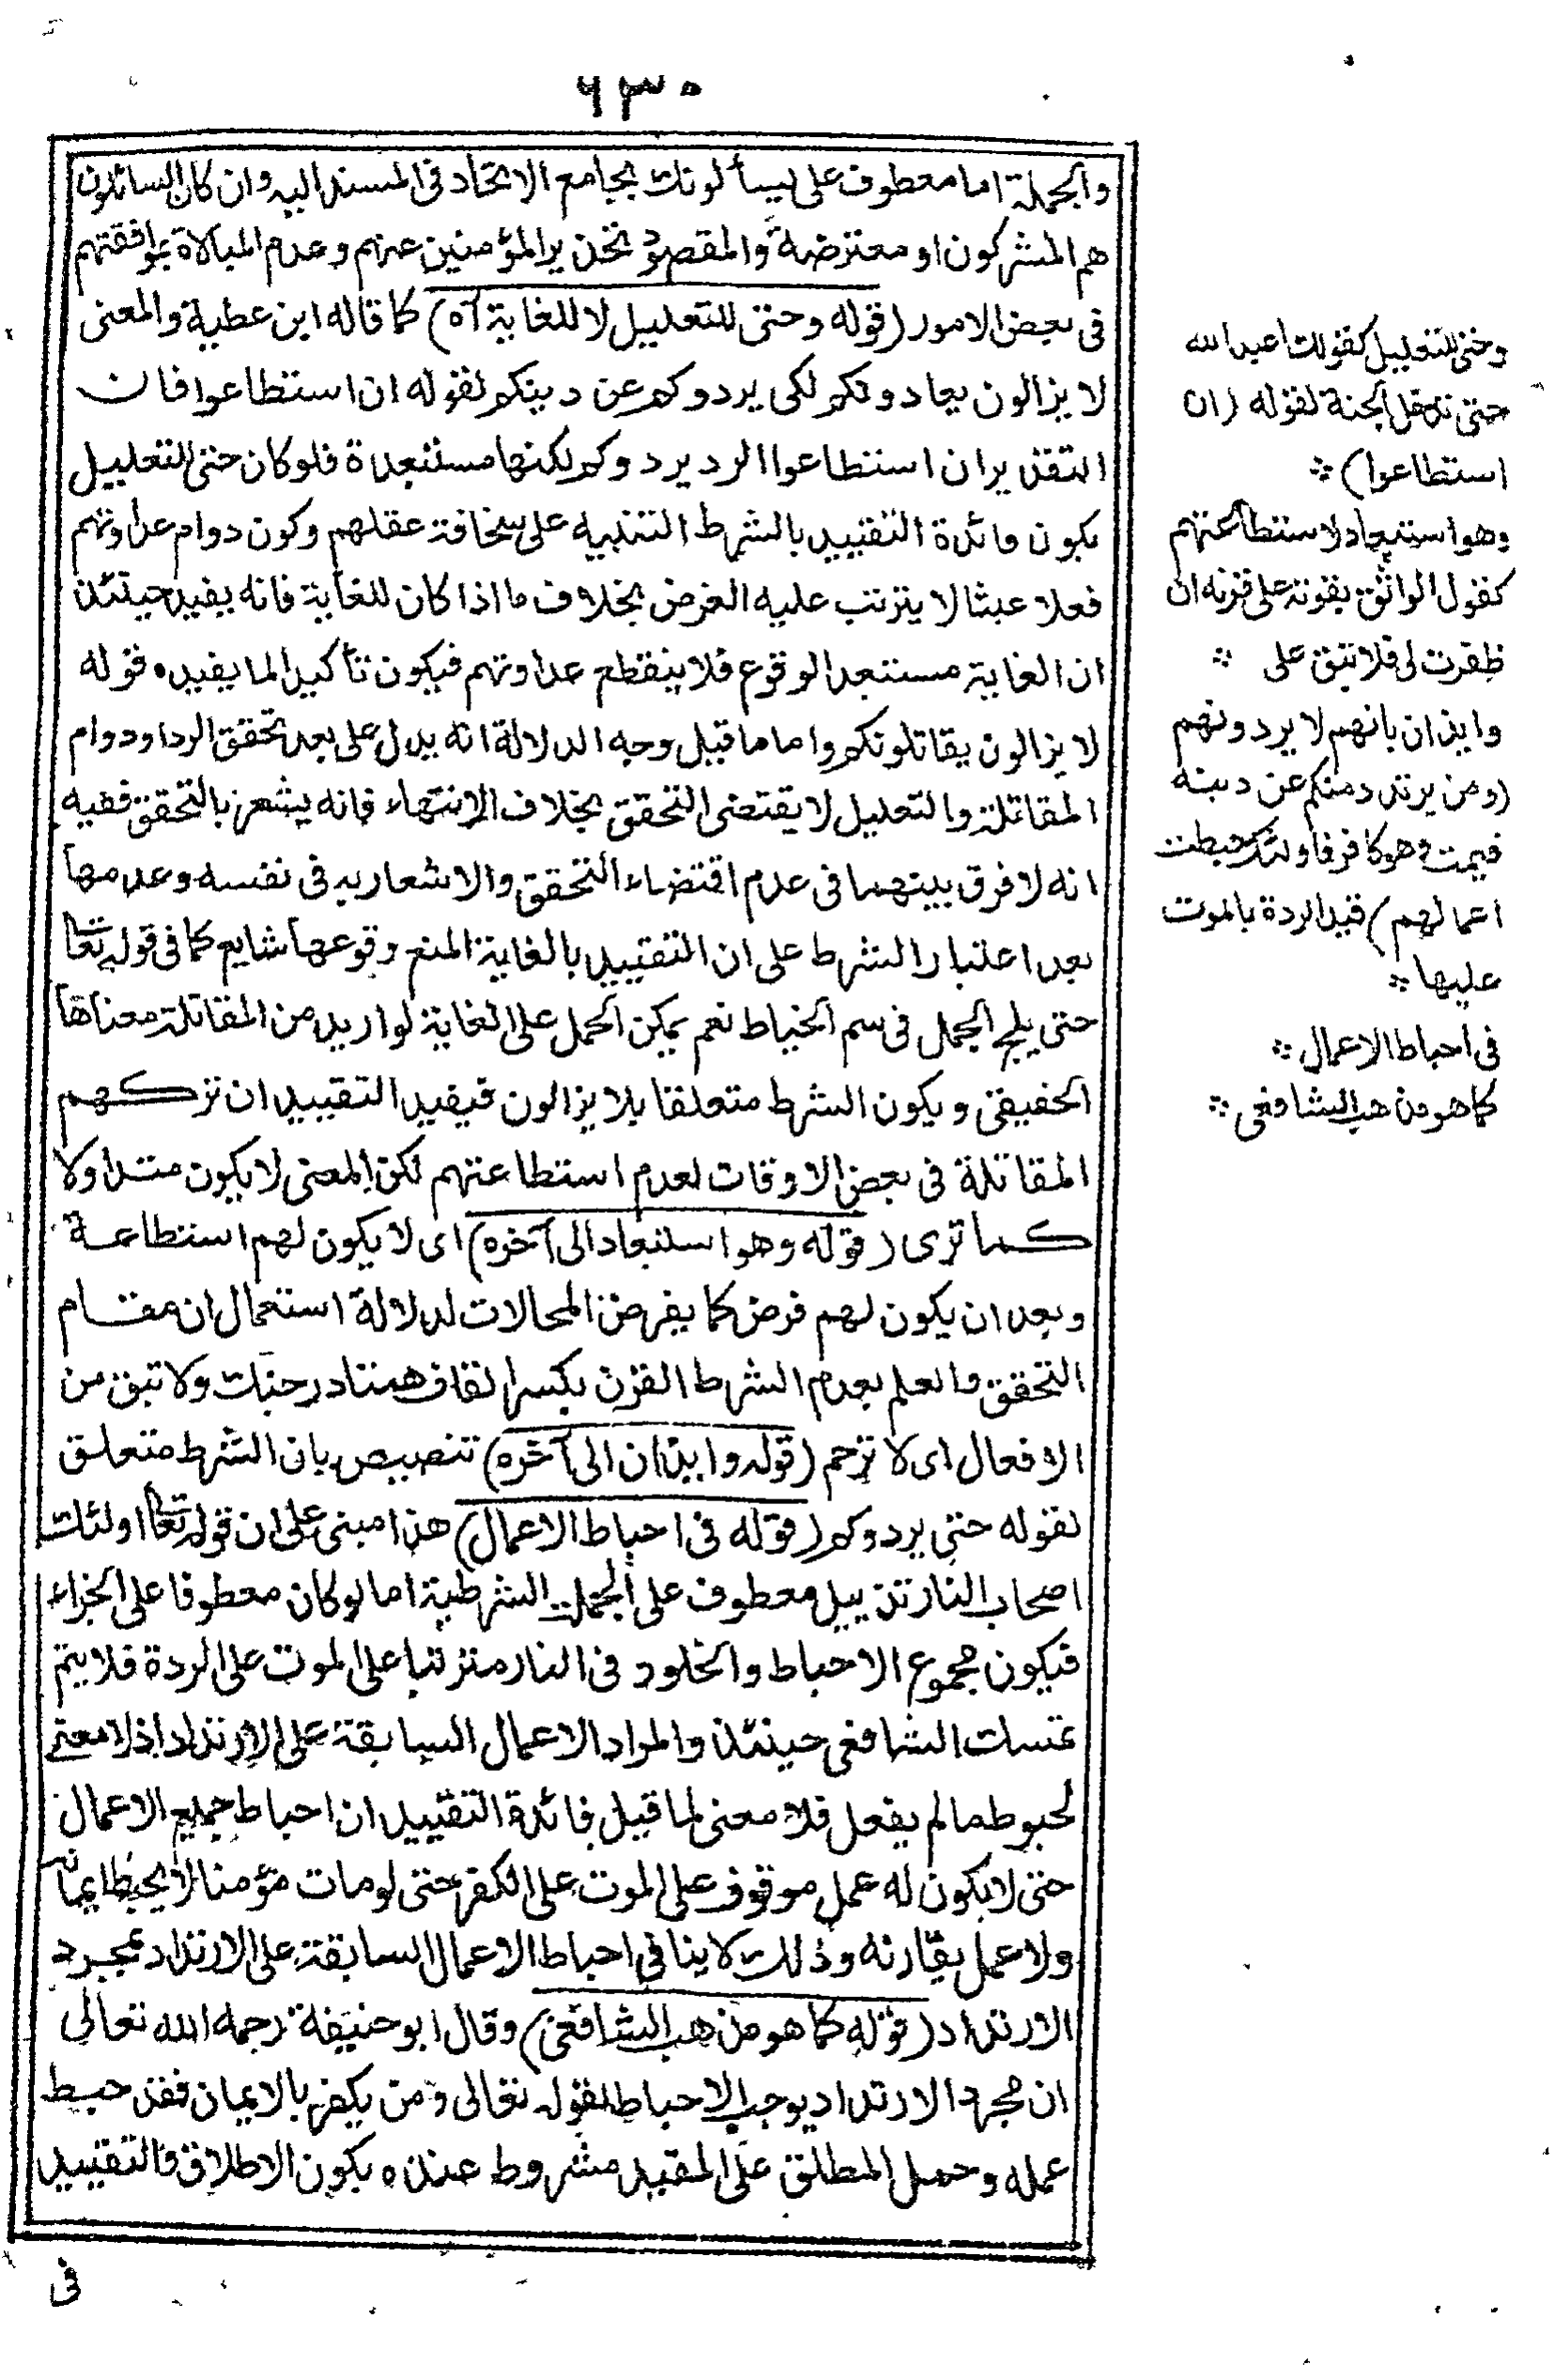 ٦٣٠
والجملة اما معطوف على يسألونك بجامع الاتحاد فى المسند اليه وان كان السائلون
هم المشركون او معترضة والمقصود تحذير المؤمنين عنهم وعدم المبالاة بموافقتهم
فى بعض الامور (قوله وحتى للتعليل لا للغاية آه) كما قاله ابن عطية والمعنى
لا يزالون يعادونكم لكى يردوكم عن دينكم لقوله ان استطاعوا فان
التقدير ان استطاعوا الرد يردوكم لكنها مستبعدة فلو كان حتى للتعليل
يكون فائدة التقييد بالشرط التنبيه على سخافة عقلهم وكون دوام عداوتهم
فعلا عبثا لا يترتب عليه الغرض بخلاف ما اذا كان للغاية فانه يفيد حينئذ
ان الغاية مستبعد الوقوع فلا ينقطع عداوتهم فيكون تأكيدا لما يفيده قوله
لا يزالون يقاتلونكم واما ما قيل وجه الدلالة انه يدل على بعد تحقق الرد او دوام
المقاتلة والتعليل لا يقتضى التحقق بخلاف الانتهاء فانه يشعر بالتحقق ففيه
انه لا فرق بينهما فى عدم اقتضاء التحقق والاشعار به فى نفسه وعدمها
بعد اعتبار الشرط على ان التقييد بالغاية الممتنع وقوعها شايع كما فى قوله تعا
حتى يلج الجمل فى سم الخياط نعم يمكن الحمل على الغاية لو اريد من المقاتلة معناها
الحقيقى ويكون الشرط متعلقا بلا يزالون فيفيد التقييد ان تركهم
المقاتلة فى بعض الاوقات لعدم استطاعتهم لكن المعنى لا يكون متداولا
كما ترى (قوله وهو استبعاد الى آخره) اى لا يكون لهم استطاعة
وبعد ان يكون لهم فرض كما يفرض المحالات لدلالة استعمال ان مقام
التحقق والعلم بعدم الشرط القرن بكسر القاف همتا در حنك ولا تبق من
الافعال اى لا ترحم (قوله وايذان الى آخره) تنصيص بان الشرط متعلق
لقوله حتى يردوكم (قوله فى احباط الاعمال) هذا مبنى على ان قوله تعا اولئك
اصحاب النار تذييل معطوف على الجملة الشرطية اما لو كان معطوفا على الجزاء
فيكون مجموع الاحباط والخلود فى النار مترتبا على الموت على الردة فلا يتم
تمسك الشافعى حينئذ والمراد الاعمال السابقة على الارتداد اذ لا معنى
لحبوط ما لم يفعل فلا معنى لما قيل فائدة التقييد ان احباط جميع الاعمال
حتى لا يكون له عمل موقوف على الموت على الكفر حتى لو مات مؤمنا لا يحبط ايمانه
ولا عمل يقارنه وذلك لا ينافى احباط الاعمال السابقة على الارتداد بمجرد
الارتداد (قوله كما هو مذهب الشافعى) وقال ابو حنيفة رحمه الله تعالى
ان مجرد الارتداد يوجب الاحباط لقوله تعالى ومن يكفر بالايمان فقد حبط
عمله وحمل المطلق على المقيد مشروط عنده بكون الاطلاق والتقييد
فى
وحتى للتعليل كقولك اعبد الله
حتى تدخل الجنة لقوله (ان
استطاعوا)
وهو استبعاد لاستطاعتهم
كقول الواثق بقوته على قرنه ان
ظفرت لى فلا تبق على
وايذان بانهم لا يردونهم
(ومن يرتدد منكم عن دينه
فيمت وهو كافر فاولئك حبطت
اعمالهم) قيد الردة بالموت
عليها
فى احباط الاعمال
كما هو مذهب الشافعى